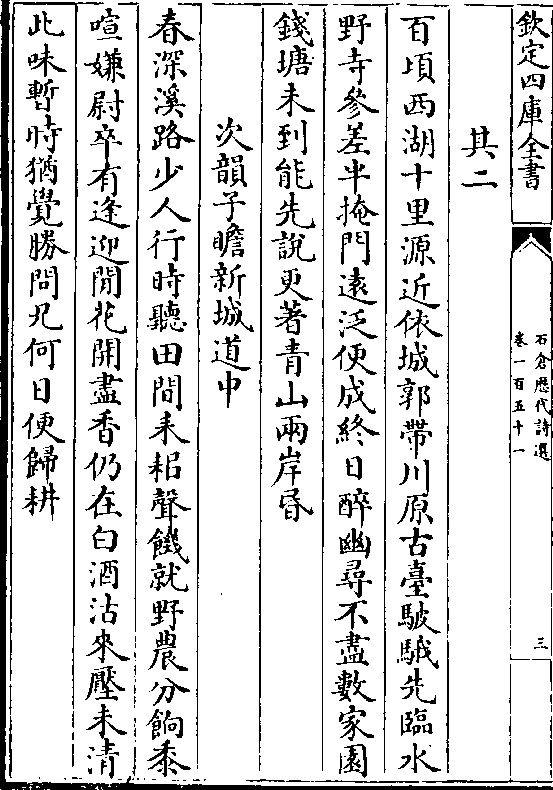 欽定四庫全書
石倉歷代詩選
卷一百五十一
三
其二
百頃西湖十里源近依城郭帶川原古臺駊騀先臨水
野寺參差半掩門遠泛便成終日醉幽尋不盡數家園
錢塘未到能先說更著青山兩岸昏
次韻子瞻新城道中
春深溪路少人行時聽田間耒耜聲饑就野農分餉黍
喧嫌尉卒有逢迎閒花開盡香仍在白酒沽來壓未清
此味暫時猶覺勝問兄何日便歸耕